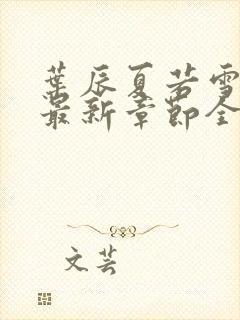 葉辰夏若雪
最新章節全
文芸